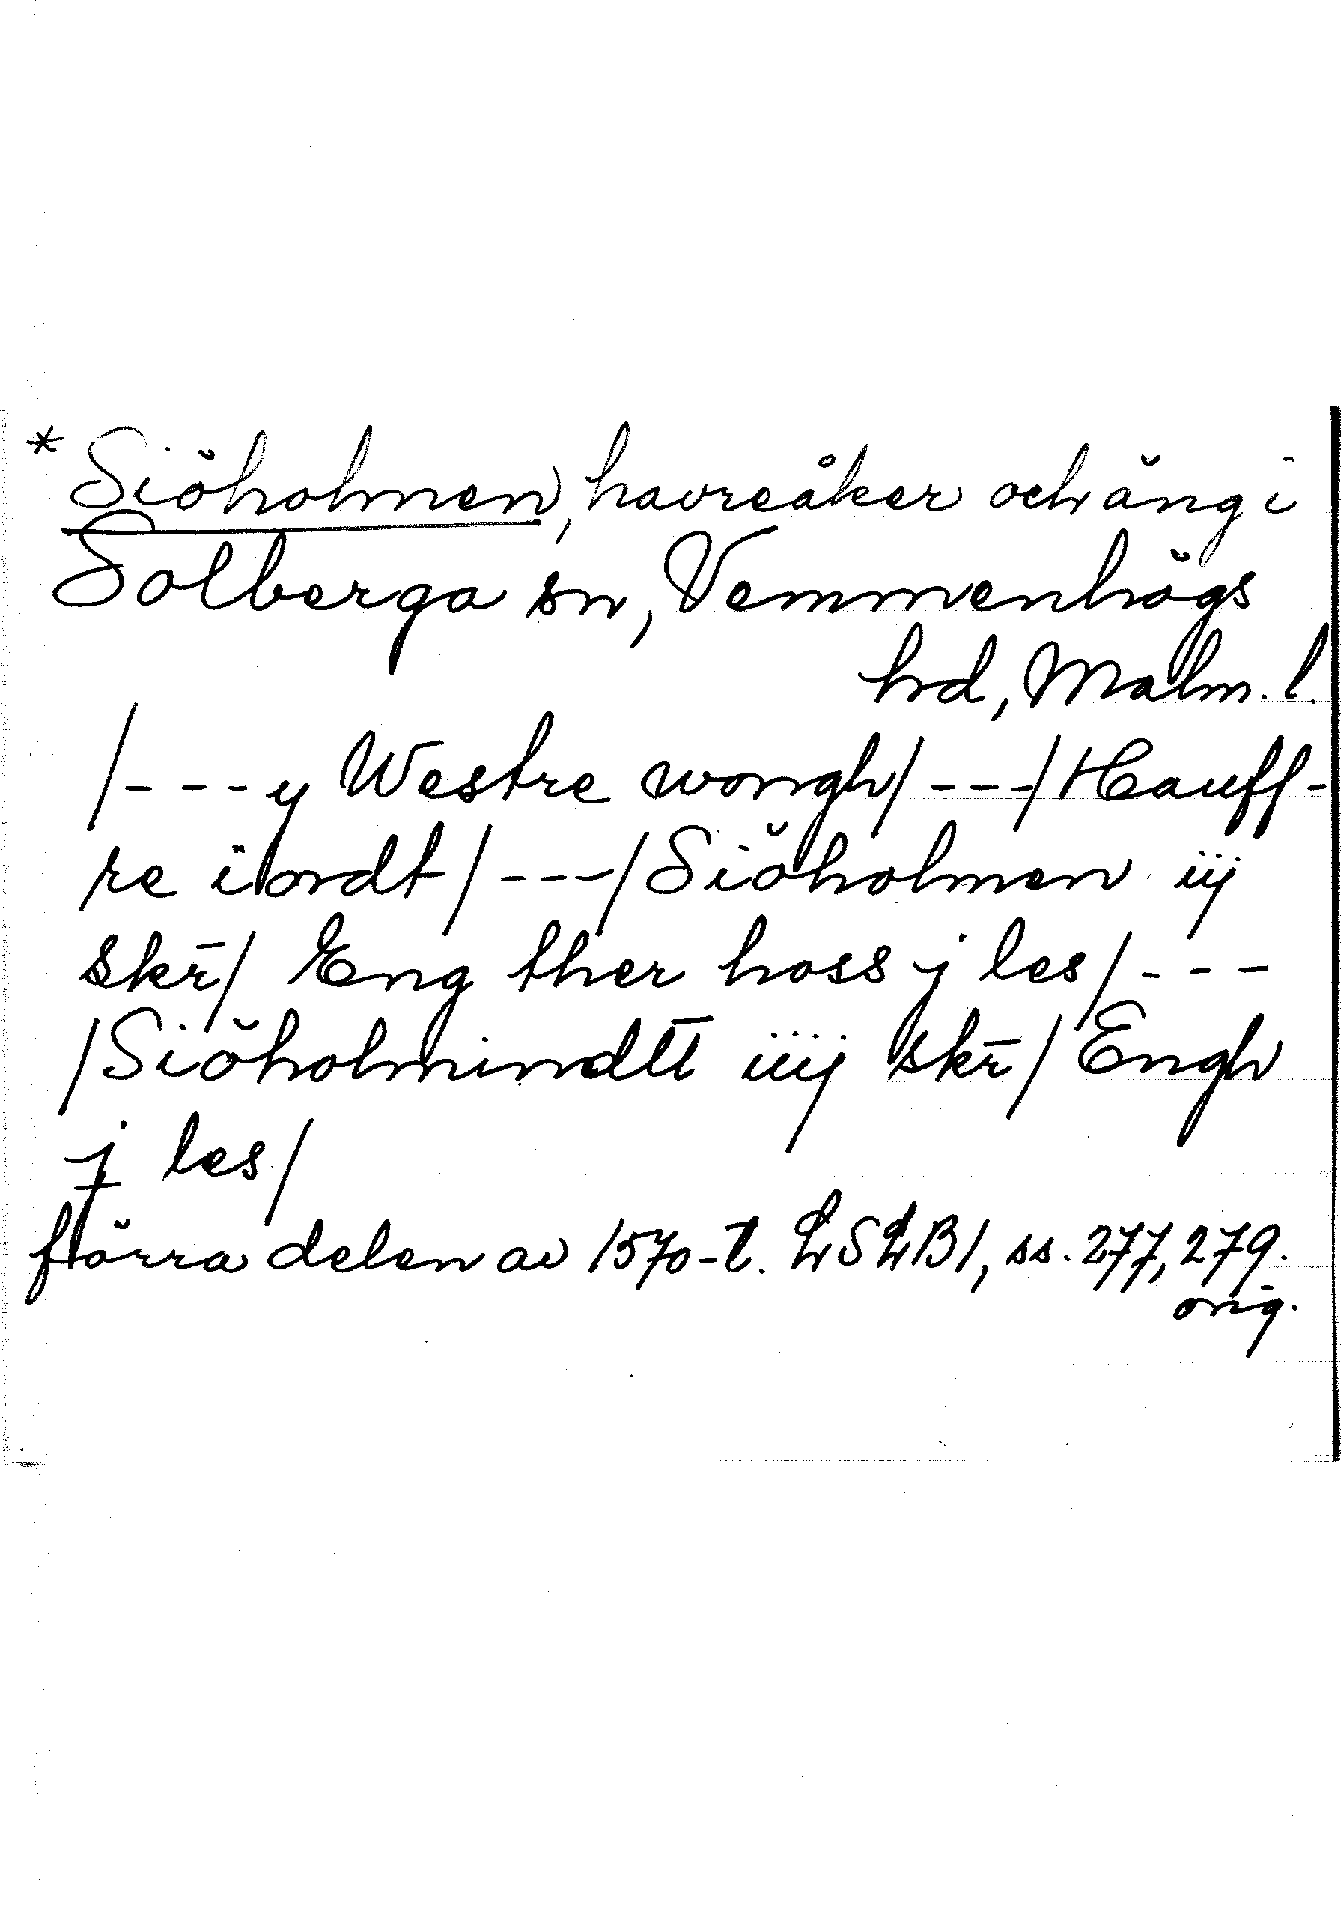 * Siöholmen, havreåker och äng i
Solberga sn, Vemmenhögs
hd, Malm. l.
/---y Westre wongh/---/Hauff-
re iordt/---/Siöholmen iij
skr̄/ Eng ther hoss j les/---
/Siöholmindtt iiij skr̄/Engh
j les/
förra delen av 1570-t. LSLB1, ss. 277, 279.
orig.